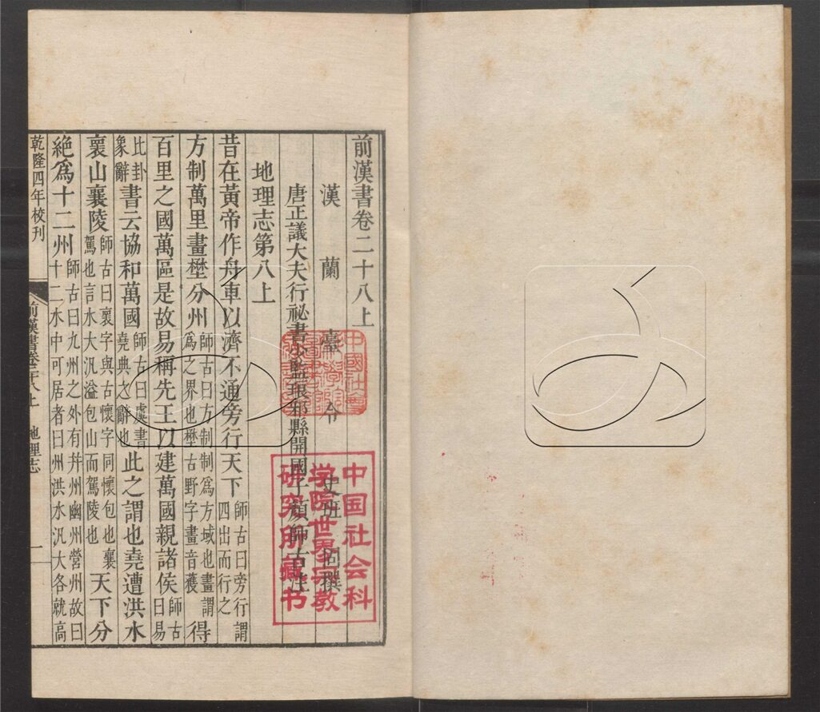 前漢書卷二十八上
漢蘭臺令史班固撰
唐正議大夫行祕書少監琅邪縣開國子顏師古注
地理志第八上
昔在黃帝作舟車以濟不通旁行天下師古曰旁行謂四出而行之
方制萬里畫壄分州師古曰方制制爲方域也畫謂爲之界也壄古野字畫音獲得
百里之國萬區是故易稱先王以建萬國親諸侯師古曰易
比卦象辭書云協和萬國師古曰虞書堯典之辭也此之謂也堯遭洪水
褱山襄陵師古曰褱字與古懷字同懷包也襄駕也言水大汎溢包山而駕陵也天下分
絕爲十二州師古曰九州之外有幷州幽州營州故曰十二水中可居者曰州洪水汎大各就高
乾隆四年校刊
前漢書卷二十八上 地理志 一
中国社会科
学院世界宗教
研究所藏书